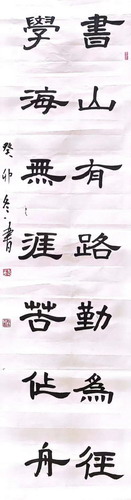 書山有路勤為徑
學海無涯苦作舟
癸卯冬書